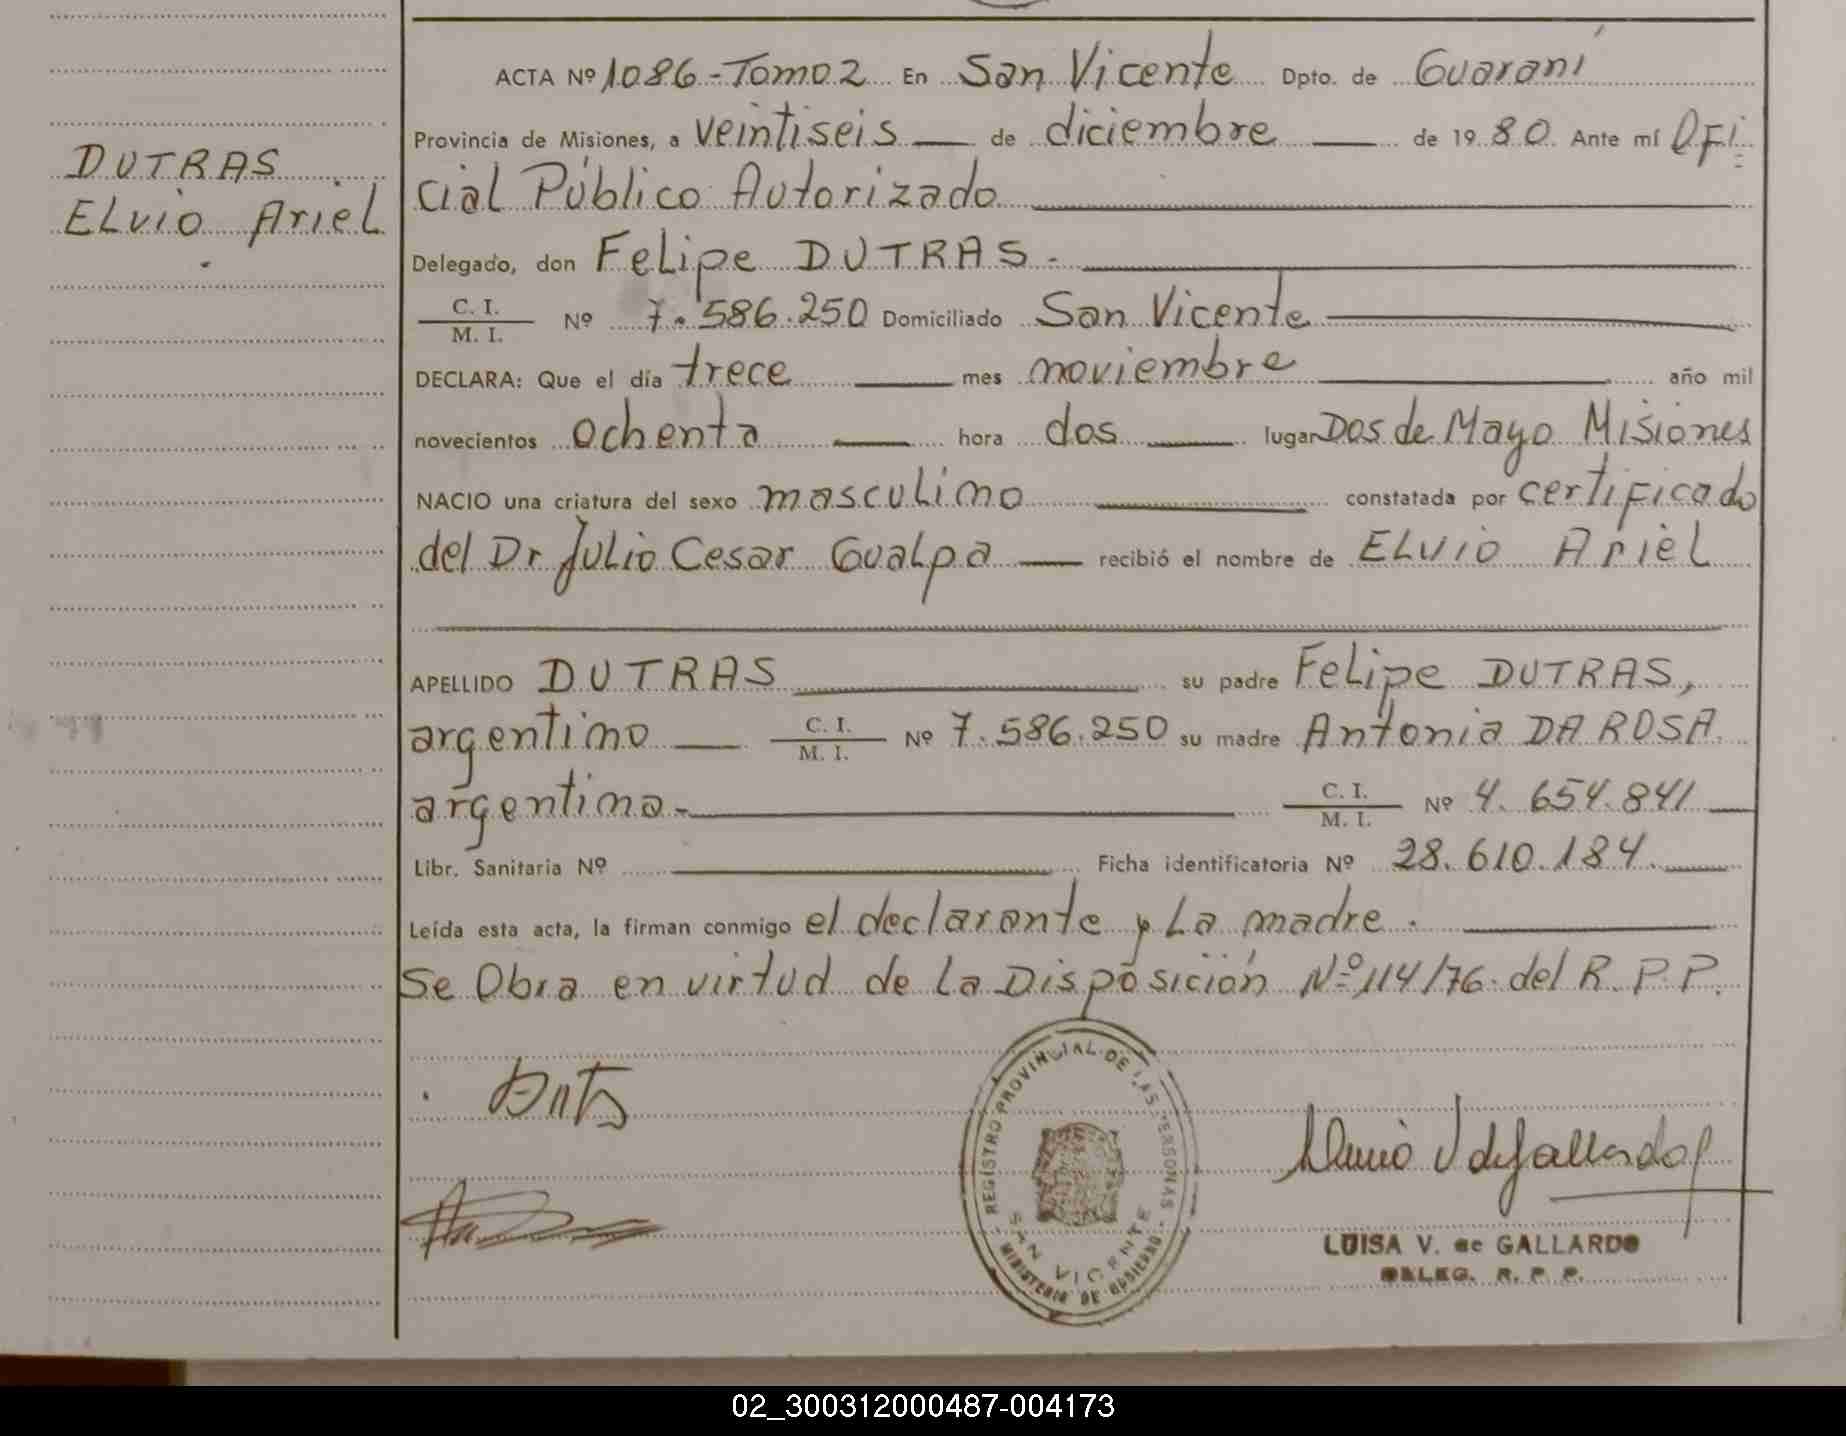 DUTRAS
ELVIO Ariel
ACTA Nº 1086-Tomo 2 En San Vicente Dpto. de Guaraní
Provincia de Misiones, a veintiseis de diciembre de 19 80. Ante mí Ofi=
cial Público Autorizado
Delegado, don Felipe DUTRAS.
C. I.
M. I.
Nº 7.586.250 Domiciliado San Vicente
DECLARA: Que el día trece mes noviembre año mil
novecientos ochenta hora dos lugar Dos de Mayo Misiones
NACIO una criatura del sexo masculino constatada por certificado
del Dr Julio Cesar Gualpa recibió el nombre de ELVIO Ariel
APELLIDO DUTRAS su padre Felipe DUTRAS,
argentino C. I. / M. I. Nº 7.586.250 su madre Antonia DA ROSA.
argentina.- C. I. / M. I. Nº 4.654.841
Libr. Sanitaria Nº Ficha identificatoria Nº 28.610.184.
Leída esta acta, la firman conmigo el declarante y La madre.
Se Obra en virtud de la Disposición Nº 114/76. del R.P.P.
REGISTRO PROVINCIAL DE LAS PERSONAS
SAN VICENTE
MINISTERIO DE GOBIERNO
LUISA V. de GALLARDO
DELEG. R. P. P.
02_300312000487-004173